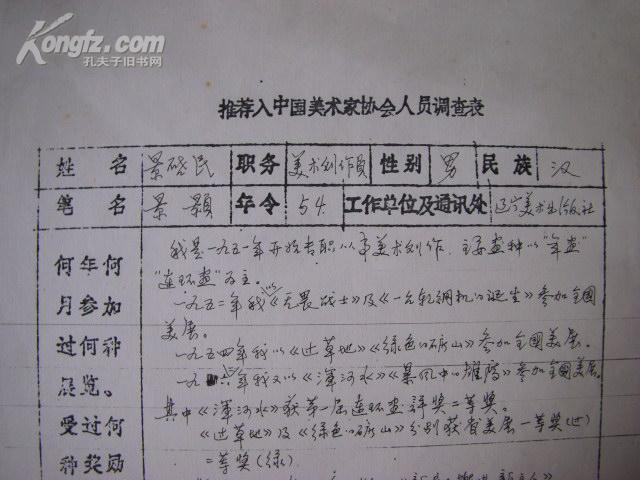 Kongfz.com
孔夫子旧书网
推荐入中国美术家协会人员调查表
姓名 景启民 职务 美术创作员 性别 男 民族 汉
笔名 景颢 年令 54 工作单位及通讯处 辽宁美术出版社
何年何月参加过何种展览。受过何种奖励
我是一九五一年开始专职从事美术创作,主要画种以“年画”
“连环画”为主。
一九五二年我以《无畏战士》及《一台轧钢机的诞生》参加全国
美展。
一九五四年我以《过草地》《绿色的矿山》参加全国美展。
一九 六年我又以《浑河水》《暴风中的雄鹰》参加全国美展。
其中《浑河水》获第一届连环画评奖二等奖。
《过草地》及《绿色的矿山》分别获省美展一等奖(过)
二等奖(绿)